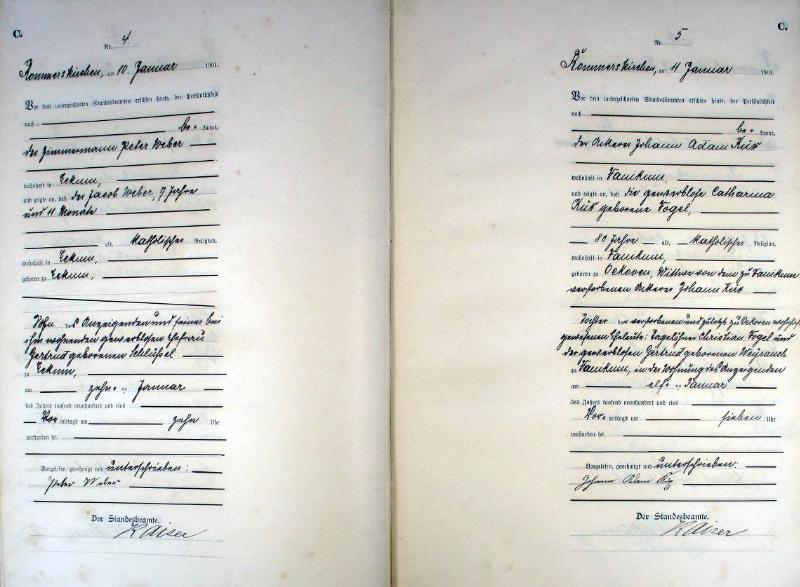 C.
Nr. 4
Rommerskirchen, am 10. Januar 1901.
Vor dem unterzeichneten Standesbeamten erschien heute, der Persönlichkeit
nach
be= kannt,
der Zimmermann Peter Weber
wohnhaft in Eckum,
und zeigte an, daß der Jacob Weber, 7 Jahre
und 11 Monate
alt, katholischer Religion,
wohnhaft in Eckum,
geboren zu Eckum,
Sohn des Anzeigenden und seiner bei
ihm wohnenden gewerblosen Ehefrau
Gertrud geborenen Schlüssel
zu Eckum,
am zehn= ten Januar
des Jahres tausend neunhundert und eins
Vor= mittags um zehn Uhr
verstorben sei.
Vorgelesen, genehmigt und unterschrieben:
Peter Weber
Der Standesbeamte.
Kaiser
C.
Nr. 5
Rommerskirchen, am 11. Januar 1901.
Vor dem unterzeichneten Standesbeamten erschien heute, der Persönlichkeit
nach
be= kannt,
der Ackerer Johann Adam Kux
wohnhaft in Vanikum,
und zeigte an, daß die gewerblose Catharina
Kux geborene Vogel,
80 Jahre alt, katholischer Religion,
wohnhaft in Vanikum,
geboren zu Oekoven, Wittwe von dem zu Vanikum
verstorbenen Ackerer Johann Kux
Tochter der verstorbenen und zuletzt zu Oekoven wohnhaft
gewesenen Eheleute: Tagelöhner Christian Vogel und
der gewerblosen Gertrud geborenen Weyrauch
zu Vanikum, in der Wohnung des Anzeigenden
am elf= ten Januar
des Jahres tausend neunhundert und eins
Vor= mittags um sieben Uhr
verstorben sei.
Vorgelesen, genehmigt und unterschrieben:
Johann Adam
Der Standesbeamte.
Kaiser